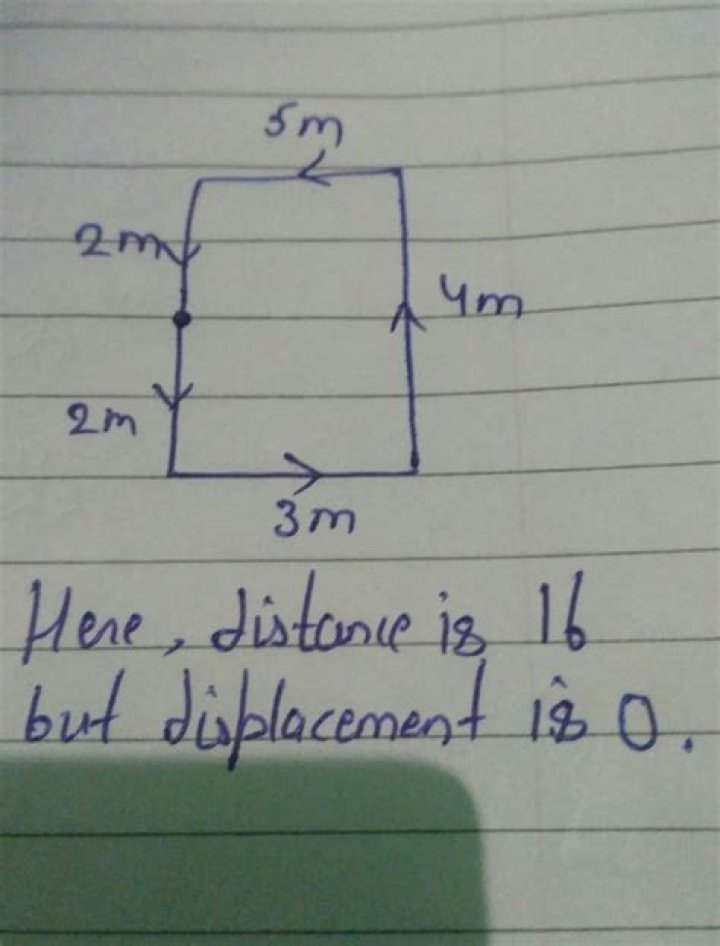 5m
2m
4m
2m
3m
Here, distance is 16
but displacement is 0.